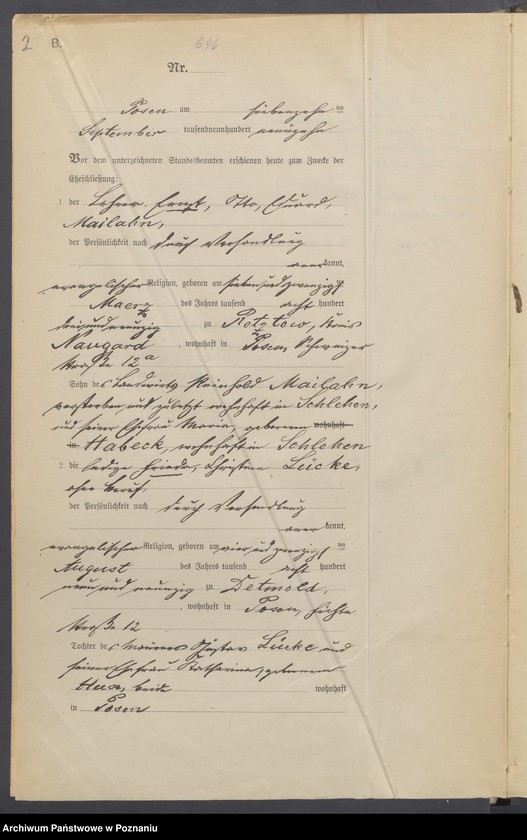 2 B. 696
Nr.
Posen am siebenzehn ten
September tausendneunhundert neunzehn
Vor dem unterzeichneten Standesbeamten erschienen heute zum Zwecke der
Eheschließung:
1. der Lehrer Ernst, Otto, Eduard,
Mailahn,
der Persönlichkeit nach durch Verhandlung
aner kannt,
evangelischer Religion, geboren am sieben und zwanzigst
Maerz des Jahres tausend acht hundert
drei und neunzig zu Retztow, Kreis
Naugard, wohnhaft in Posen, Schweizer
straße 12a
Sohn des Landwirts Reinhold Mailahn,
verstorben und zuletzt wohnhaft in Schlehen,
und seiner Ehefrau Maria, geborenen wohnhaft
in Habeck, wohnhaft in Schlehen
2. die ledige Frieda, Christine Lücke,
ohne Beruf,
der Persönlichkeit nach durch Verhandlung
aner kannt,
evangelischer Religion, geboren am vier und zwanzigst ten
August des Jahres tausend acht hundert
neun und neunzig zu Detmold,
, wohnhaft in Posen, Fichte
straße 12
Tochter des Maurers Gustav Lücke und
seiner Ehefrau Katharina, geborenen
beide wohnhaft
in Posen
Archiwum Państwowe w Poznaniu